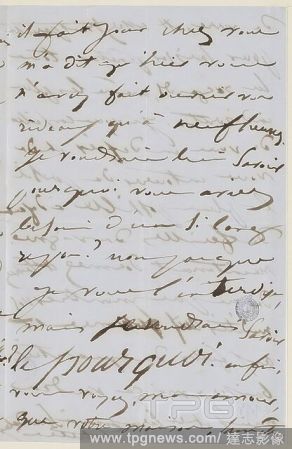 il fait jour chez vous
m'a dit qu'hier vous
n'avez fait ouvrir vos
rideaux qu'à neuf heures
Je voudrais bien savoir
pourquoi vous aviez
besoin d'un si long
repos? non pas que
je vous l'interdis
mais je voudrais savoir
le pourquoi. enfin
vous voyez, mon amour
que votre
TPG
www.tpgnews.com / 達志影像